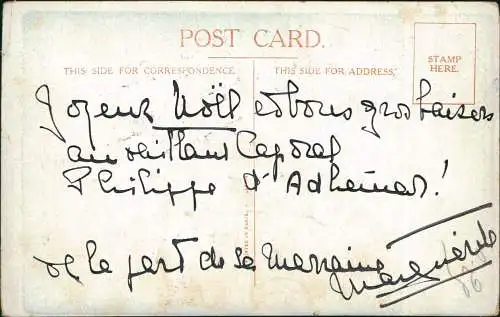 POST CARD.
STAMP
HERE.
THIS SIDE FOR CORRESPONDENCE.
THIS SIDE FOR ADDRESS.
Joyeux Noël et bons gros baisers
au vaillant Caporal
Philippe d'Adhémar!
de la part de sa marraine
Marguerite